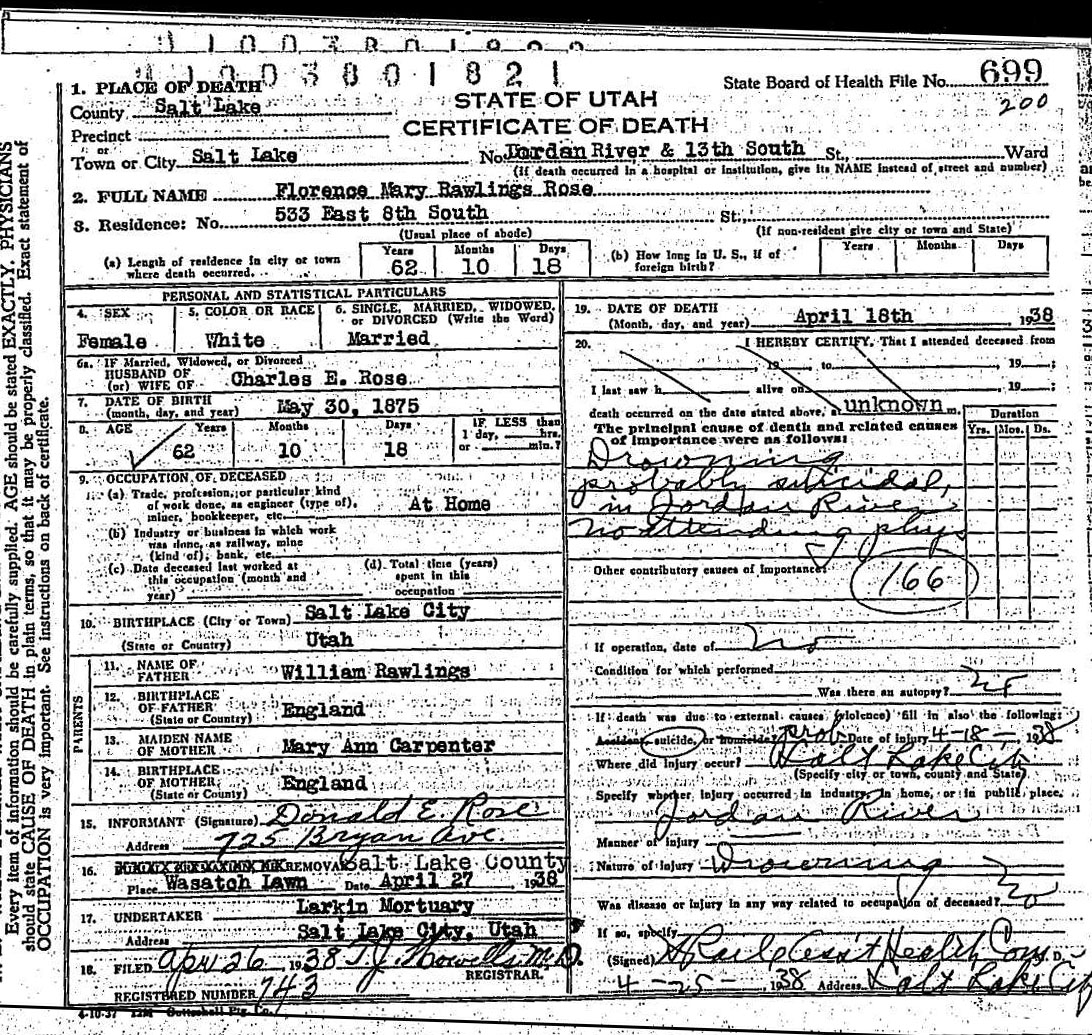 1003801821
1. PLACE OF DEATH
State Board of Health File No. 699
200
County Salt Lake
STATE OF UTAH
CERTIFICATE OF DEATH
Precinct
or
Town or City Salt Lake No. Jordan River & 13th South St., Ward
(if death occurred in a hospital or institution, give its NAME instead of street and number)
2. FULL NAME Florence Mary Rawlings Rose
3. Residence: No. 533 East 8th South St.,
(Usual place of abode) (If non-resident give city or town and State)
(a) Length of residence in city or town where death occurred. Years 62 Months 10 Days 18
(b) How long in U. S., if of foreign birth? Years Months Days
PERSONAL AND STATISTICAL PARTICULARS
4. SEX
Female
5. COLOR OR RACE
White
6. SINGLE, MARRIED, WIDOWED, or DIVORCED (Write the Word)
Married
6a. IF Married, Widowed, or Divorced
HUSBAND OF
(or) WIFE OF Charles E. Rose
7. DATE OF BIRTH
(month, day, and year) May 30, 1875
8. AGE Years 62 Months 10 Days 18
IF LESS than
1 day, hrs.
or min.?
9. OCCUPATION OF DECEASED
(a) Trade, profession, or particular kind
of work done, as engineer (type of),
miner, bookkeeper, etc. At Home
(b) Industry or business in which work
was done, as railway, mine
(kind of); bank, etc.
(c) Date deceased last worked at
this occupation (month and
year)
(d) Total time (years)
spent in this
occupation
10. BIRTHPLACE (City or Town) Salt Lake City
(State or Country) Utah
PARENTS
11. NAME OF
FATHER William Rawlings
12. BIRTHPLACE
OF FATHER
(State or Country) England
13. MAIDEN NAME
OF MOTHER Mary Ann Carpenter
14. BIRTHPLACE
OF MOTHER
(State or County) England
15. INFORMANT (Signature) Donald E. Rose
Address 725 Bryan Ave.
16. REMOVAL Salt Lake County
Place Wasatch Lawn Date April 27 1938
17. UNDERTAKER Larkin Mortuary
Address Salt Lake City, Utah
18. FILED Apr 26 1938 T.J. Howells M.D.
REGISTRAR.
REGISTERED NUMBER 743
4-10-37 12M
19. DATE OF DEATH
(Month, day, and year) April 18th 1938
20. I HEREBY CERTIFY, That I attended deceased from
19 to 19 ;
I last saw h alive on 19 ;
death occurred on the date stated above, at unknown m.
The principal cause of death and related causes
of importance were as follows:
Duration
Yrs. Mos. Ds.
Drowning
probably suicidal,
in Jordan River
no attending phys
Other contributory causes of importance:
166
If operation, date of no
Condition for which performed
Was there an autopsy? no
If death was due to external causes (violence) fill in also the following:
Accident, suicide, or homicide? prob Date of injury 4-18- 1938
Where did injury occur? Salt Lake City
(Specify city or town, county and State)
Specify whether injury occurred in industry, in home, or in public place.
Jordan River
Manner of injury
Nature of injury Drowning
Was disease or injury in any way related to occupation of deceased? no
If so, specify
(Signed) Ass't Health Com M. D.
4-25- 1938 Address Salt Lake City
Every item of information should be carefully supplied. AGE should be stated EXACTLY. PHYSICIANS
should state CAUSE OF DEATH in plain terms, so that it may be properly classified. Exact statement of
OCCUPATION is very important. See instructions on back of certificate.